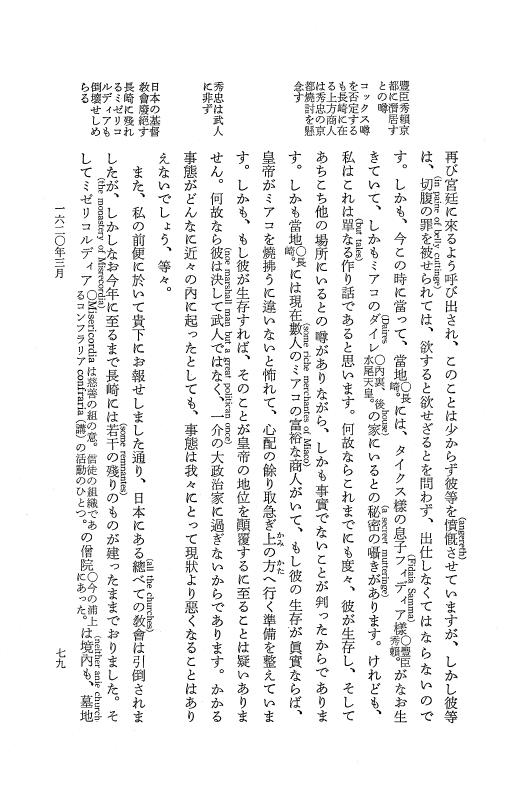 豐臣秀頼京
都に潛居す
との噂
コックス噂
を否定する
も長崎に在
る上方商人
は秀忠の京
都燒討を懸
念す
秀忠は武人
に非ず
日本の基督
敎會廢絶す
長崎に殘れ
るミゼリコ
ルディアも
倒壞せしめ
らる
再び宮廷に來るよう呼び出され、このことは少からず彼等を憤慨(angereth)させていますが、しかし彼等
は、切腹の罪(in paine of belly cuttinge)を被せられては、欲すると欲せざるとを問わず、出仕しなくてはならないので
す。しかも、今この時に當って、當地〇長崎。には、タイクス樣の息子フィディア樣(Fidaia Samma)〇豐臣秀頼。がなお生
きていて、しかもミアコのダイレ(Daires)〇內裏、後水尾天皇。の家(house)にいるとの秘密の囁き(a secret mutteringe)があります。けれども、
私はこれは單なる作り話(but tales)であると思います。何故ならこれまでにも度々、彼が生存し、そして
あちこち他の場所にいるとの噂がありながら、しかも事實でないことが判ったからでありま
す。しかも當地〇長崎。には現在數人のミアコの富裕な商人(some riche merchantes of Miaco)がいて、もし彼の生存が眞實ならば、
皇帝がミアコを燒拂うに違いないと怖れて、心配の餘り取急ぎ上の方(かみかた)へ行く準備を整えていま
す。しかも、もし彼が生存すれば、そのことが皇帝の地位を顚覆するに至ることは疑いありま
せん。何故なら彼は決して武人ではなく、一介の大政治家(noe marshall man but a great politican once)に過ぎないからであります。かかる
事態がどんなに近々の內に起ったとしても、事態は我々にとって現狀より惡くなることはあり
えないでしょう、等々。
また、私の前便に於いて貴下にお報せしました通り、日本にある總べての敎會(all the churches)は引倒されま
したが、しかしなお今年に至るまで長崎には若干の殘りのもの(some remnantes)が建ったままでおりました。そ
してミゼリコルディア〇Misericordia は慈善の組の意。信徒の組織であるコンフラリア confraria(講)の活動のひとつ。の僧院(the monastery of Misericordia)〇今の浦上にあった。は境內も、墓地(neither anie church
一六二〇年三月
七九